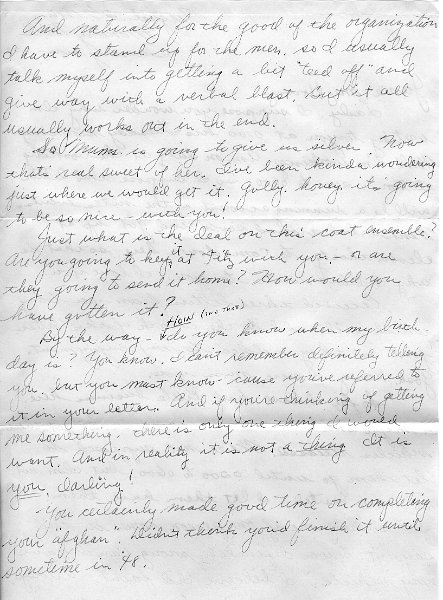 And naturally for the good of the organization
I have to stand up for the men, so I usually
talk myself into getting a bit "teed off" and
give way with a verbal blast. But it all
usually works out in the end.
So Mums is going to give us silver. Now
that's real sweet of her. I've been kinda wondering
just where we would get it. Golly, honey, its going
to be so nice - with you!
Just what is the deal on this coat ensemble?
Are you going to keep it at with you - or are
they going to send it home? How would you
have gotten it?
HOW (INSERT)
By the way - do you know when my birth-
day is? You know, I can't remember definitely telling
you, but you must know 'cause you've referred to
it in your letter. And if you're thinking of getting
me something, there is only one thing I would
want. And in reality it is not a thing It is
you, darling!
You certainly made good time on completing
your "afghan". Didn't think you'd finish it until
sometime in '48.